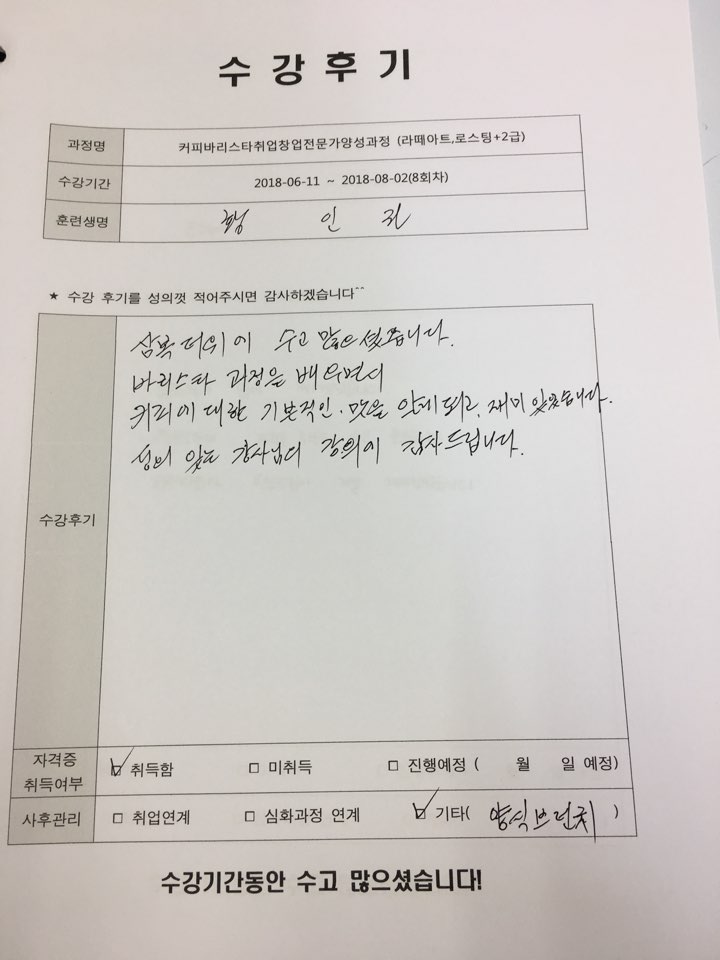 수강후기
과정명 커피바리스타취업창업전문가양성과정 (라떼아트,로스팅+2급)
수강기간 2018-06-11 ~ 2018-08-02(8회차)
훈련생명 인
★ 수강 후기를 성의껏 적어주시면 감사하겠습니다^^
삼복더위에 수고 많으셨습니다.
바리스타 과정을 배우면서
커피에 대한 기본적인 맛을 알게 되고, 재미 있었습니다.
성의 있는 강사님의 강의에 감사드립니다.
수강후기
자격증 취득여부 ☑ 취득함 □ 미취득 □ 진행예정 ( 월 일 예정)
사후관리 □ 취업연계 □ 심화과정 연계 ☑ 기타( 양식브런치 )
수강기간동안 수고 많으셨습니다!